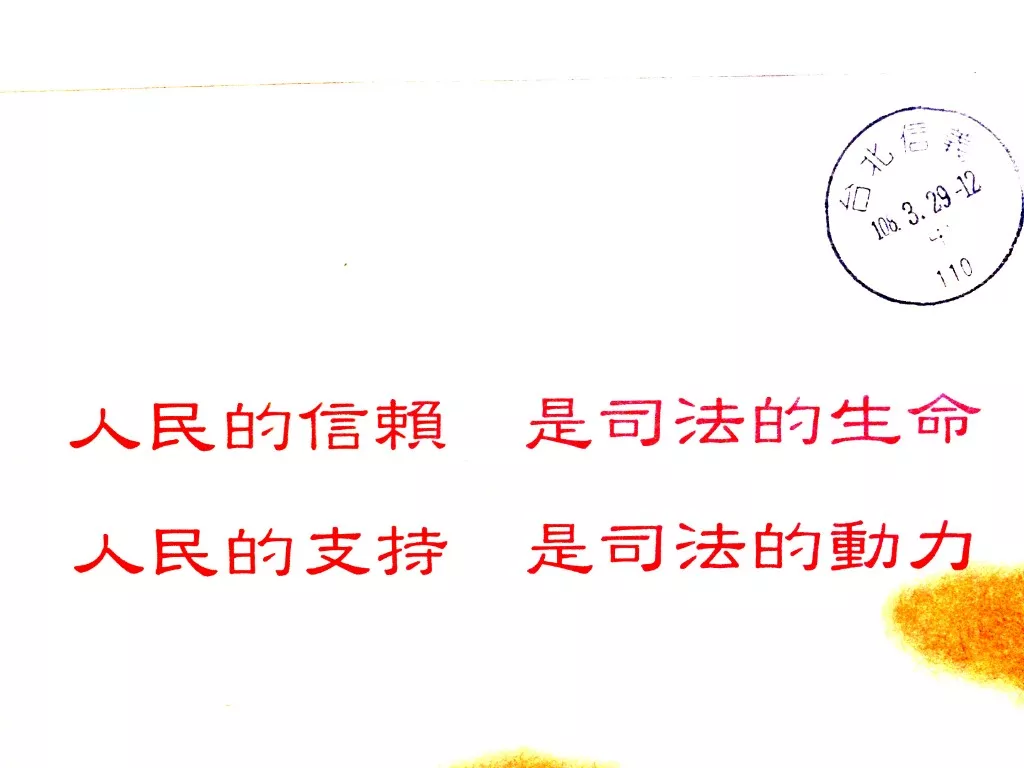 台北信義
106. 3. 29-12
110
人民的信賴 是司法的生命
人民的支持 是司法的動力